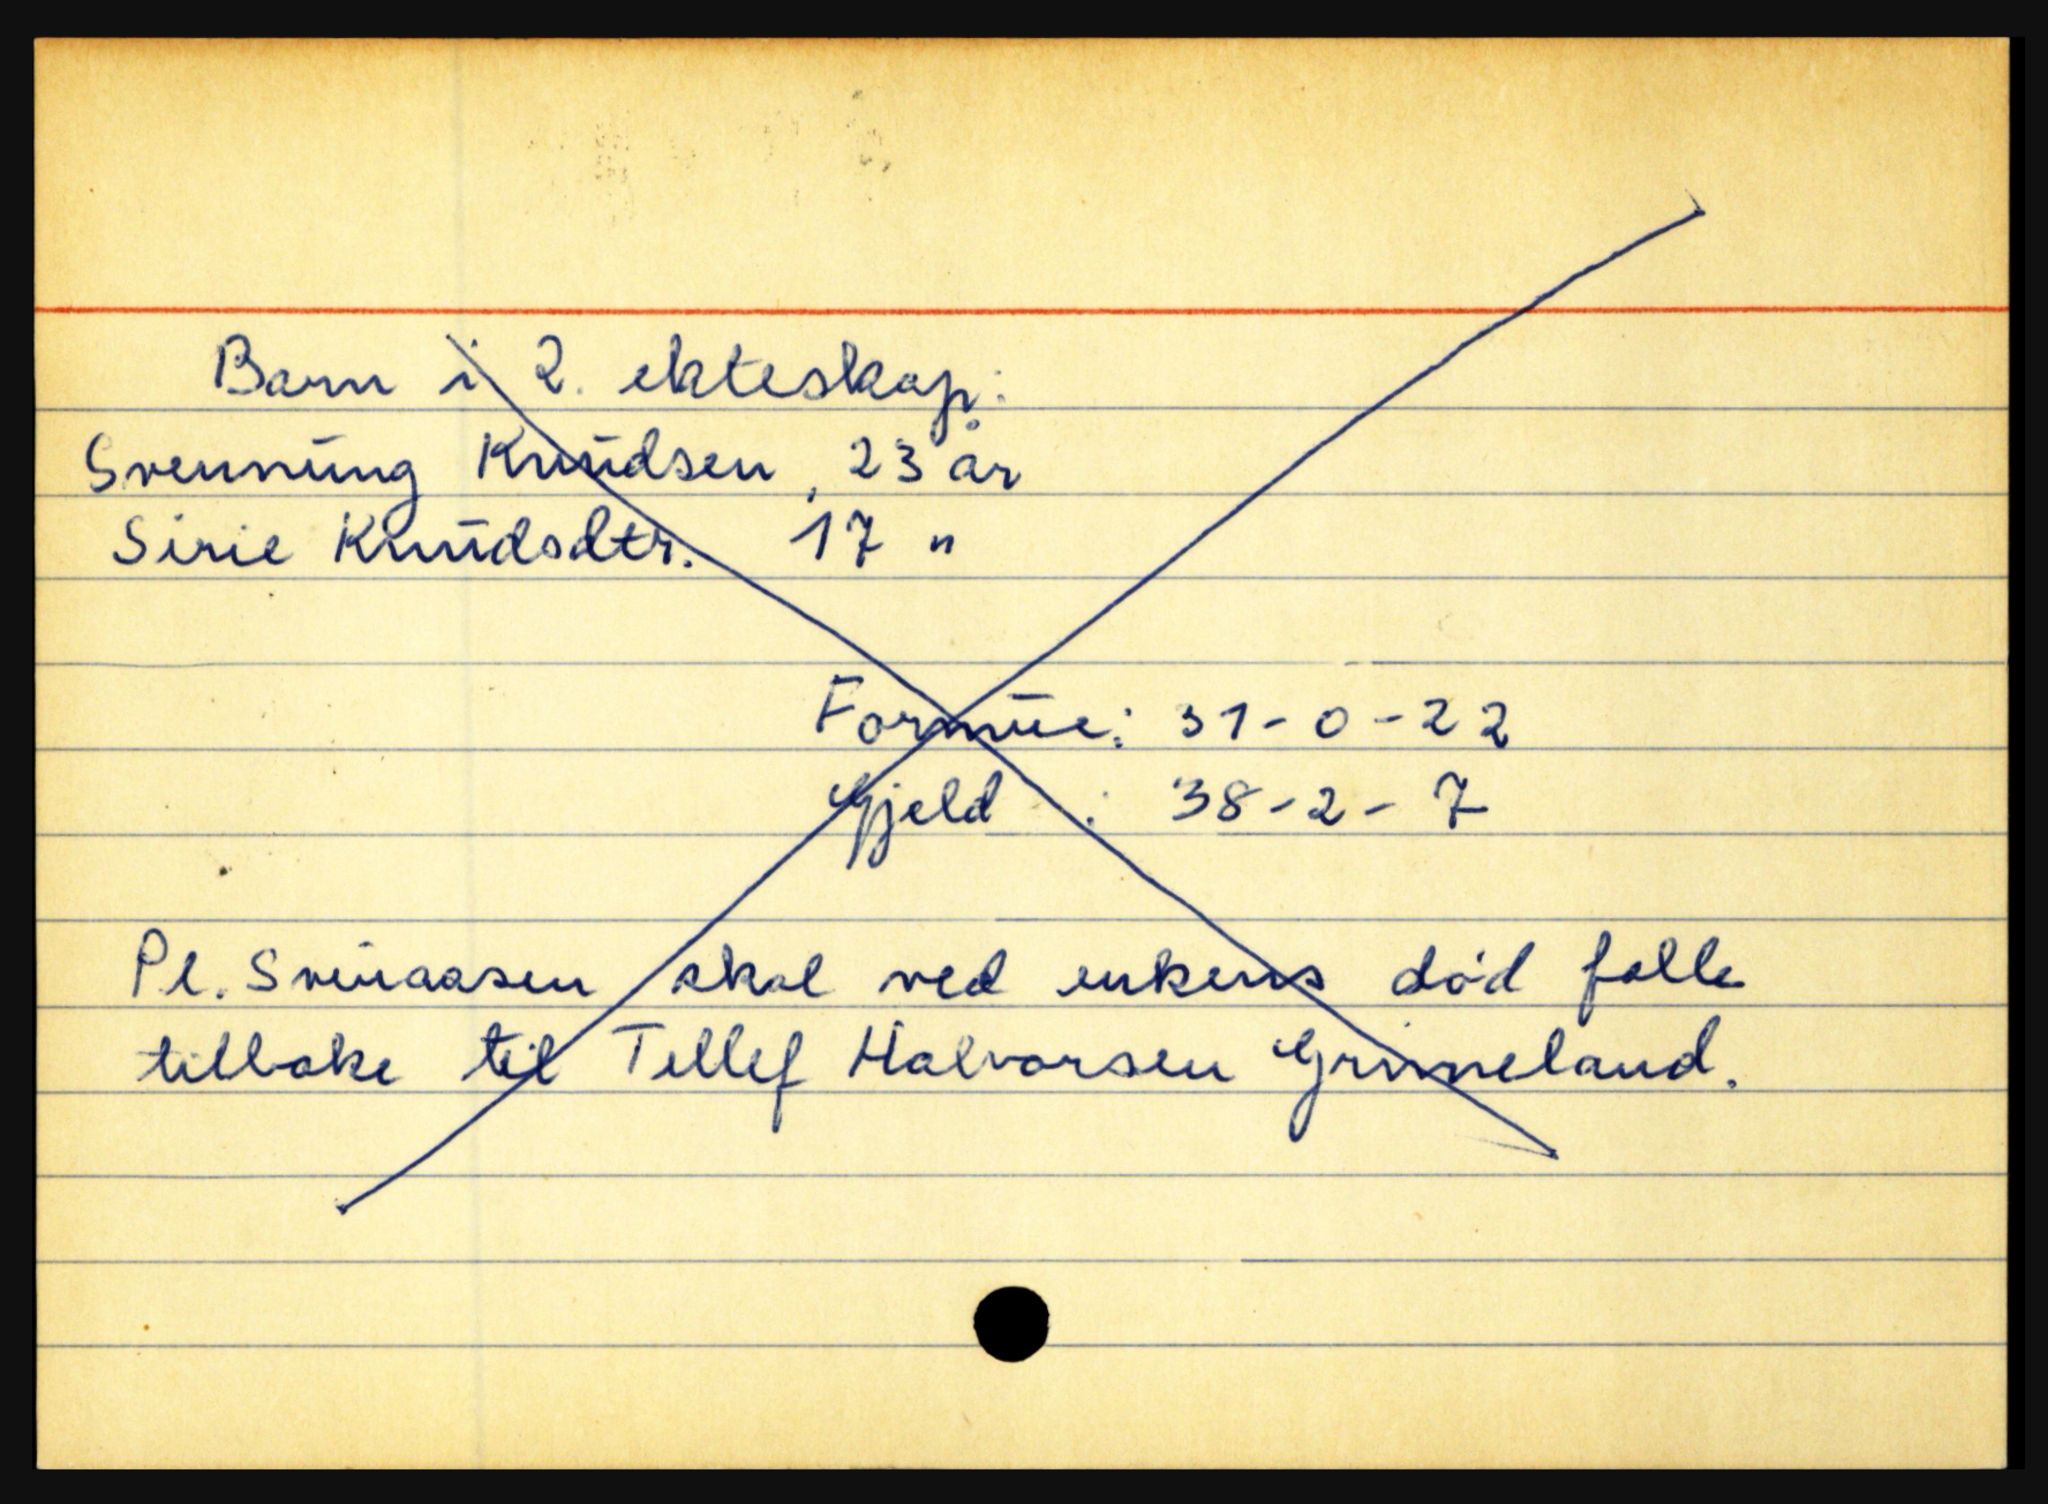 Barn i 2. ekteskap:
Svennung Knudsen, 23 år
Sirie Knudsdtr. 17 "
Formue: 31-0-22
Gjeld : 38-2-7
Pl. Svinaasen skal ved enkens død falle
tilbake til Tellef Halvorsen Grimeland.